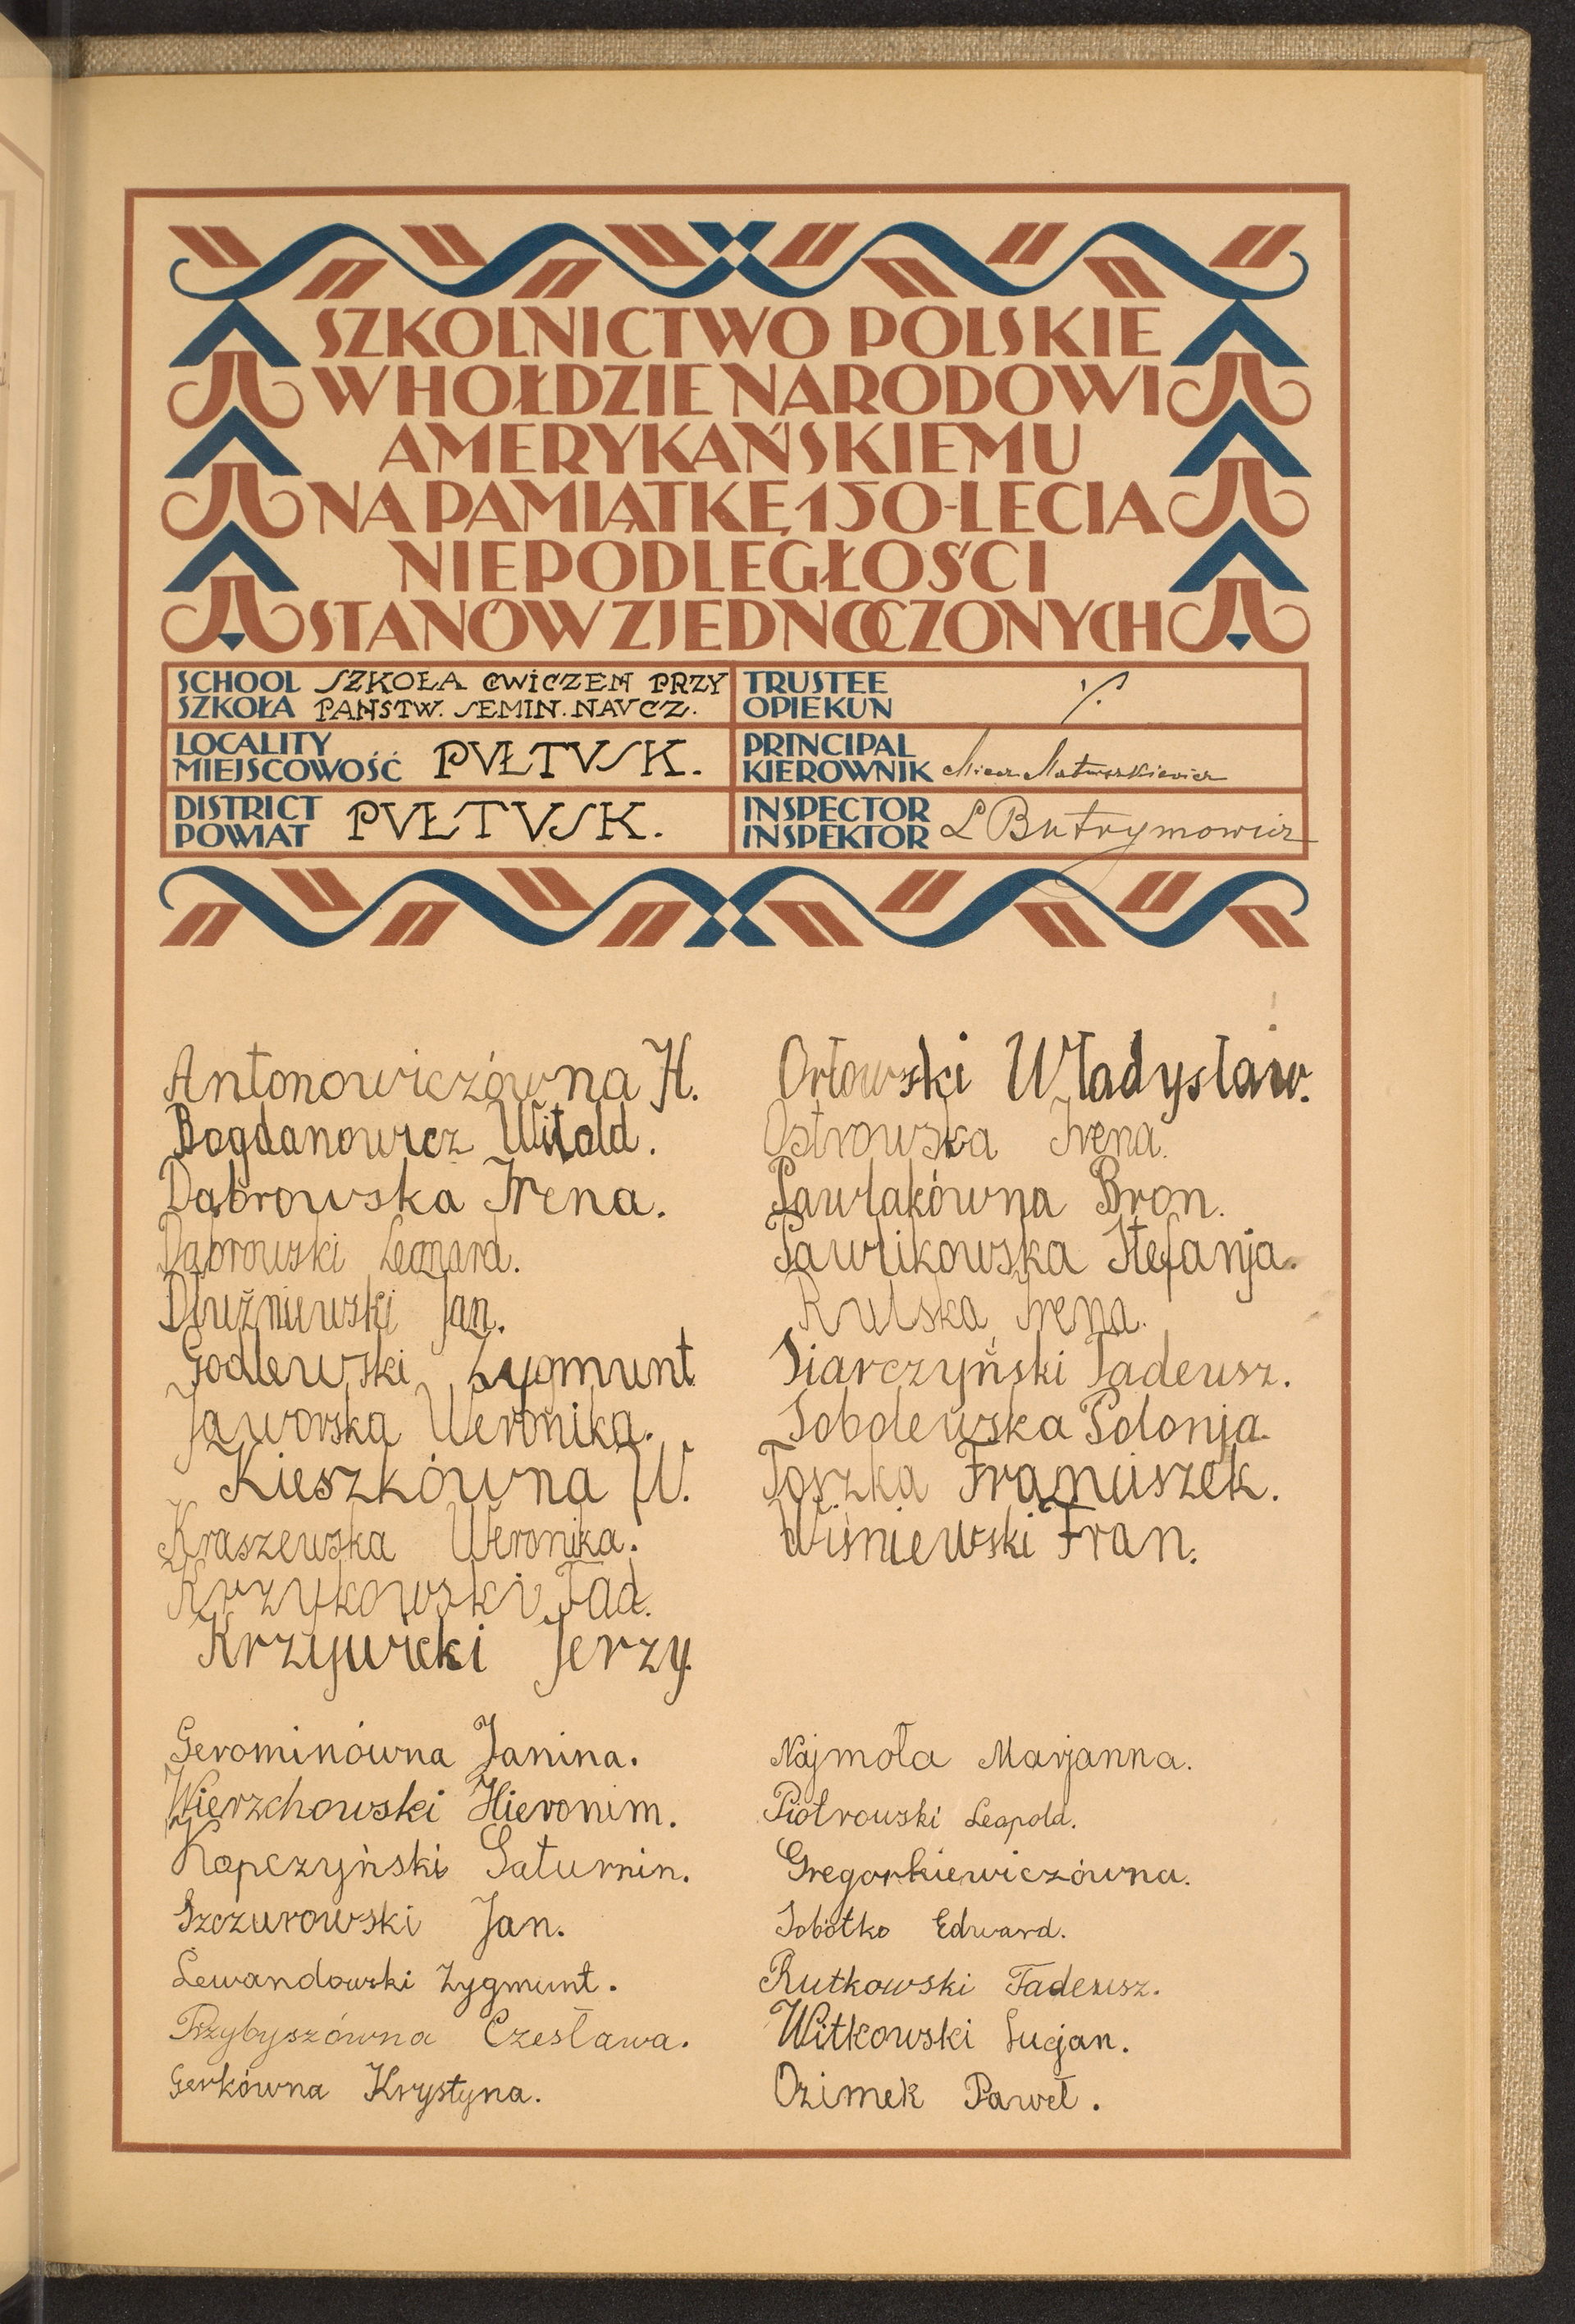 SZKOLNICTWO POLSKIE
W HOŁDZIE NARODOWI
AMERYKAŃSKIEMU
NA PAMIĄTKĘ 150-LECIA
NIEPODLEGŁOŚCI
STANÓW ZJEDNOCZONYCH
SCHOOL SZKOŁA ĆWICZEŃ PRZY
SZKOŁA PAŃSTW. SEMIN. NAUCZ.
TRUSTEE
OPIEKUN
LOCALITY
MIEJSCOWOŚĆ PUŁTUSK.
PRINCIPAL
KIEROWNIK Miecz. Matuszkiewicz
DISTRICT
POWIAT PUŁTUSK.
INSPECTOR
INSPEKTOR L Butrymowicz
Antonowiczówna H.
Bogdanowicz Witold.
Dąbrowska Irena.
Dąbrowski Leonard.
Dłużniewski Jan.
Godlewski Zygmunt
Jaworska Weronika.
Kieszkówna W.
Kraszewska Weronika.
Krzykowski Tad.
Krzywicki Jerzy.
Orłowski Władysław.
Ostrowska Irena.
Pawlakówna Bron.
Pawlikowska Stefanja.
Rulska Irena.
Siarczyński Tadeusz.
Sobolewska Polonja.
Toszka Franciszek.
Wiśniewski Fran.
Gerominówna Janina.
Wierzchowski Hieronim.
Kopczyński Saturnin.
Szczurowski Jan.
Lewandowski Zygmunt.
Przybyszówna Czesława.
Gerkówna Krystyna.
Najmoła Marjanna.
Piotrowski Leopold.
Gregorkiewiczówna.
Sobótko Edward.
Rutkowski Tadeusz.
Witkowski Lucjan.
Ozimek Paweł.